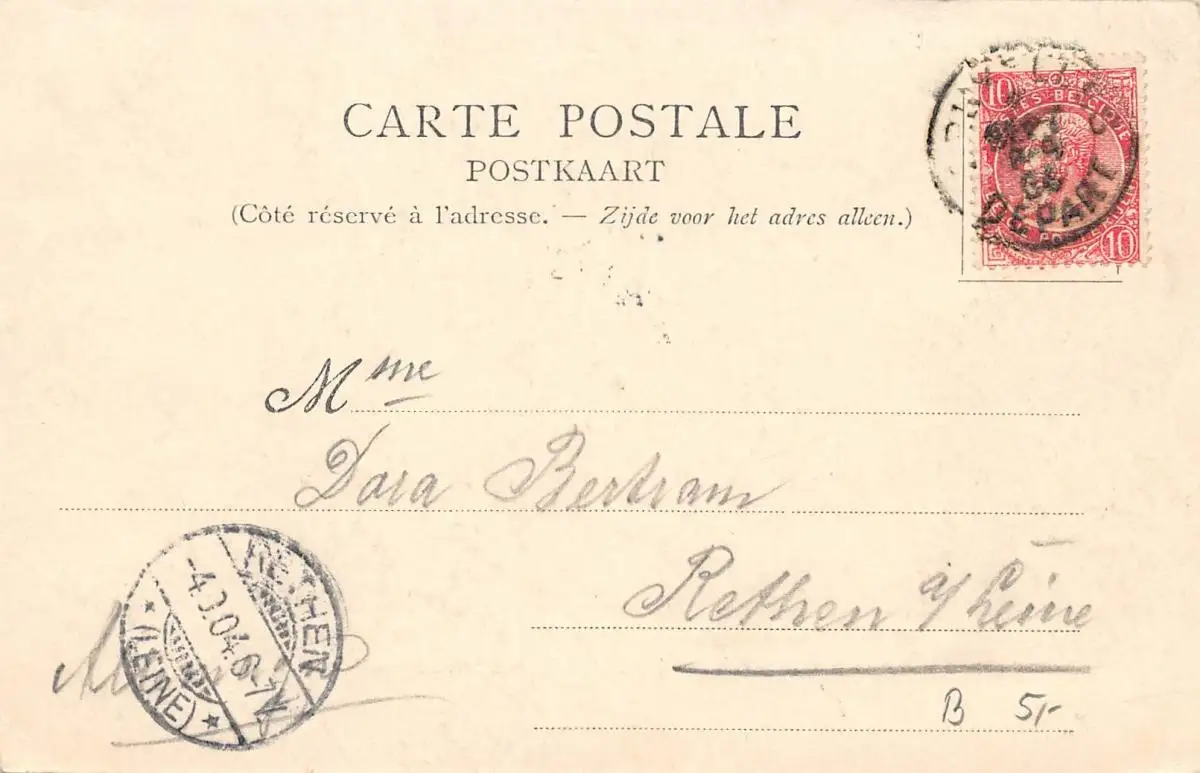 CARTE POSTALE
POSTKAART
(Côté réservé à l'adresse. — Zijde voor het adres alleen.)
10 BELGIQUE
DEPART
10
Mme
Dora Bertram
Rethen a/Leine
RETHEN
(LEINE)
B 5,-